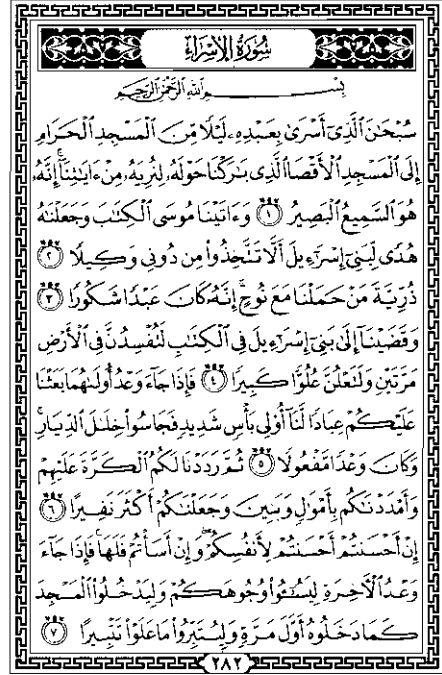 سُورَةُ الإِسْرَاءِ
بِسْمِ اللَّهِ الرَّحْمَٰنِ الرَّحِيمِ
سُبْحَٰنَ ٱلَّذِىٓ أَسْرَىٰ بِعَبْدِهِۦ لَيْلًا مِّنَ ٱلْمَسْجِدِ ٱلْحَرَامِ
إِلَى ٱلْمَسْجِدِ ٱلْأَقْصَا ٱلَّذِى بَٰرَكْنَا حَوْلَهُۥ لِنُرِيَهُۥ مِنْ ءَايَٰتِنَآ ۚ إِنَّهُۥ
هُوَ ٱلسَّمِيعُ ٱلْبَصِيرُ ١ وَءَاتَيْنَا مُوسَى ٱلْكِتَٰبَ وَجَعَلْنَٰهُ
هُدًى لِّبَنِىٓ إِسْرَٰٓءِيلَ أَلَّا تَتَّخِذُوا۟ مِن دُونِى وَكِيلًا ٢
ذُرِّيَّةَ مَنْ حَمَلْنَا مَعَ نُوحٍ ۚ إِنَّهُۥ كَانَ عَبْدًا شَكُورًا ٣
وَقَضَيْنَآ إِلَىٰ بَنِىٓ إِسْرَٰٓءِيلَ فِى ٱلْكِتَٰبِ لَتُفْسِدُنَّ فِى ٱلْأَرْضِ
مَرَّتَيْنِ وَلَتَعْلُنَّ عُلُوًّا كَبِيرًا ٤ فَإِذَا جَآءَ وَعْدُ أُولَىٰهُمَا بَعَثْنَا
عَلَيْكُمْ عِبَادًا لَّنَآ أُو۟لِى بَأْسٍ شَدِيدٍ فَجَاسُوا۟ خِلَٰلَ ٱلدِّيَارِ ۚ
وَكَانَ وَعْدًا مَّفْعُولًا ٥ ثُمَّ رَدَدْنَا لَكُمُ ٱلْكَرَّةَ عَلَيْهِمْ
وَأَمْدَدْنَٰكُم بِأَمْوَٰلٍ وَبَنِينَ وَجَعَلْنَٰكُمْ أَكْثَرَ نَفِيرًا ٦
إِنْ أَحْسَنتُمْ أَحْسَنتُمْ لِأَنفُسِكُمْ ۖ وَإِنْ أَسَأْتُمْ فَلَهَا ۚ فَإِذَا جَآءَ
وَعْدُ ٱلْءَاخِرَةِ لِيَسُۥٓـُٔوا۟ وُجُوهَكُمْ وَلِيَدْخُلُوا۟ ٱلْمَسْجِدَ
كَمَا دَخَلُوهُ أَوَّلَ مَرَّةٍ وَلِيُتَبِّرُوا۟ مَا عَلَوْا۟ تَتْبِيرًا ٧
٢٨٢